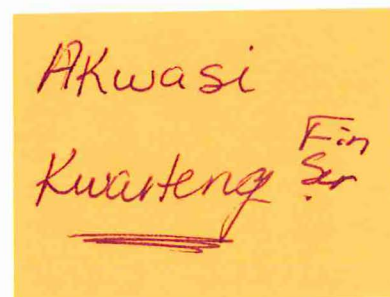 Akwasi
Kwarteng
Fin
Ser